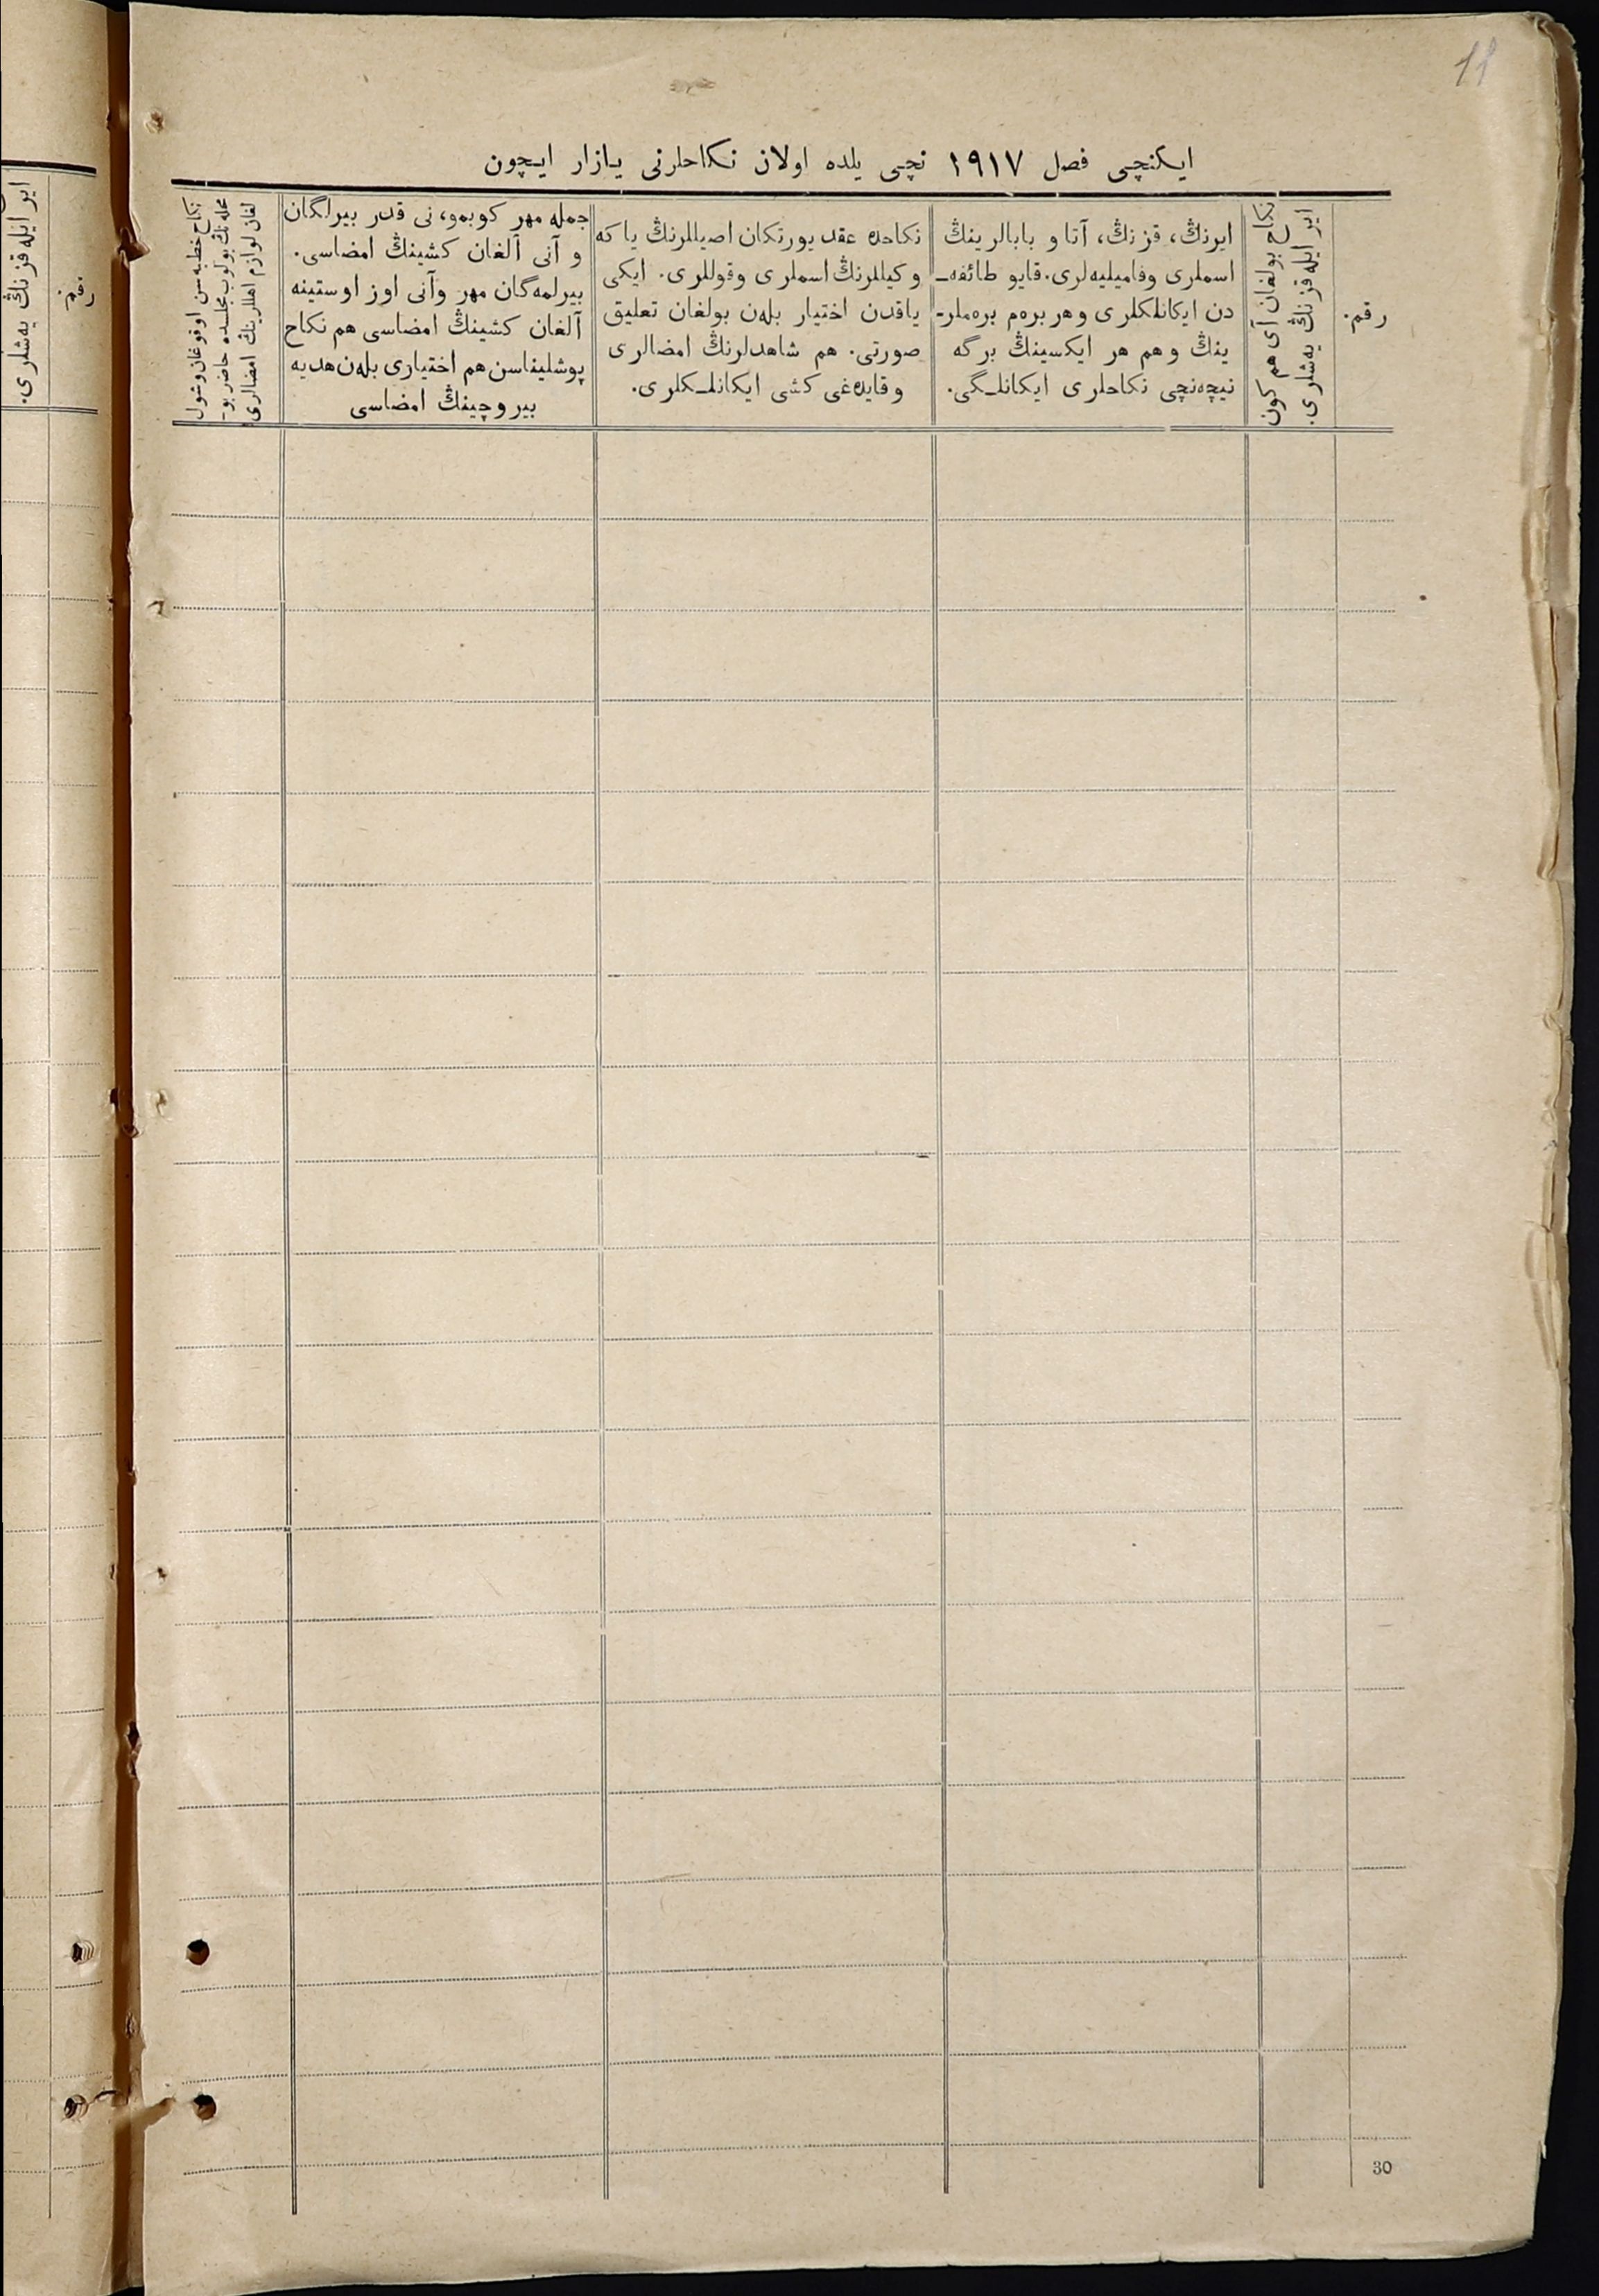 11
ایکنچی فصل ١٩١٧ نچی یلده اولان نکاحلرنی یازار ایچون
رقم.
ایر ایله قزنڭ یەشلری.
نکاح بولغان آی هم کون
ایرنڭ، قزنڭ، آتا و بابالرینڭ
اسملری وفامیلیەلری. قایو طائفە-
دن ایکانلکلری و هر برەم برەملر-
ینڭ و هم هر ایکسینڭ برگه
نیچەنچی نکاحلری ایکانلـگی.
نکاحده عقد یورتکان اصیللرنڭ یاکه
وکیللرنڭ اسملری وقوللری. ایکی
یاقدن اختیار بلەن بولغان تعلیق
صورتی. هم شاهدلرنڭ امضالری
وقایدەغی کشی ایکانلـکلری.
جمله مهر کوبمو، نی قدر بیرلگان
و آنی آلغان کشینڭ امضاسی.
بیرلمەگان مهر وآنی اوز اوستینه
آلغان کشینڭ امضاسی هم نکاح
پوشلیناسن هم اختیاری بلەن هدیه
بیروچینڭ امضاسی
نکاح خطبەسن اوقوغان وشول
محلەنڭ بولوب مجلسده حاضر بو-
لغان لوازم اهللرینڭ امضالری
رقم.
ایر ایله قزنڭ یەشلری.
30